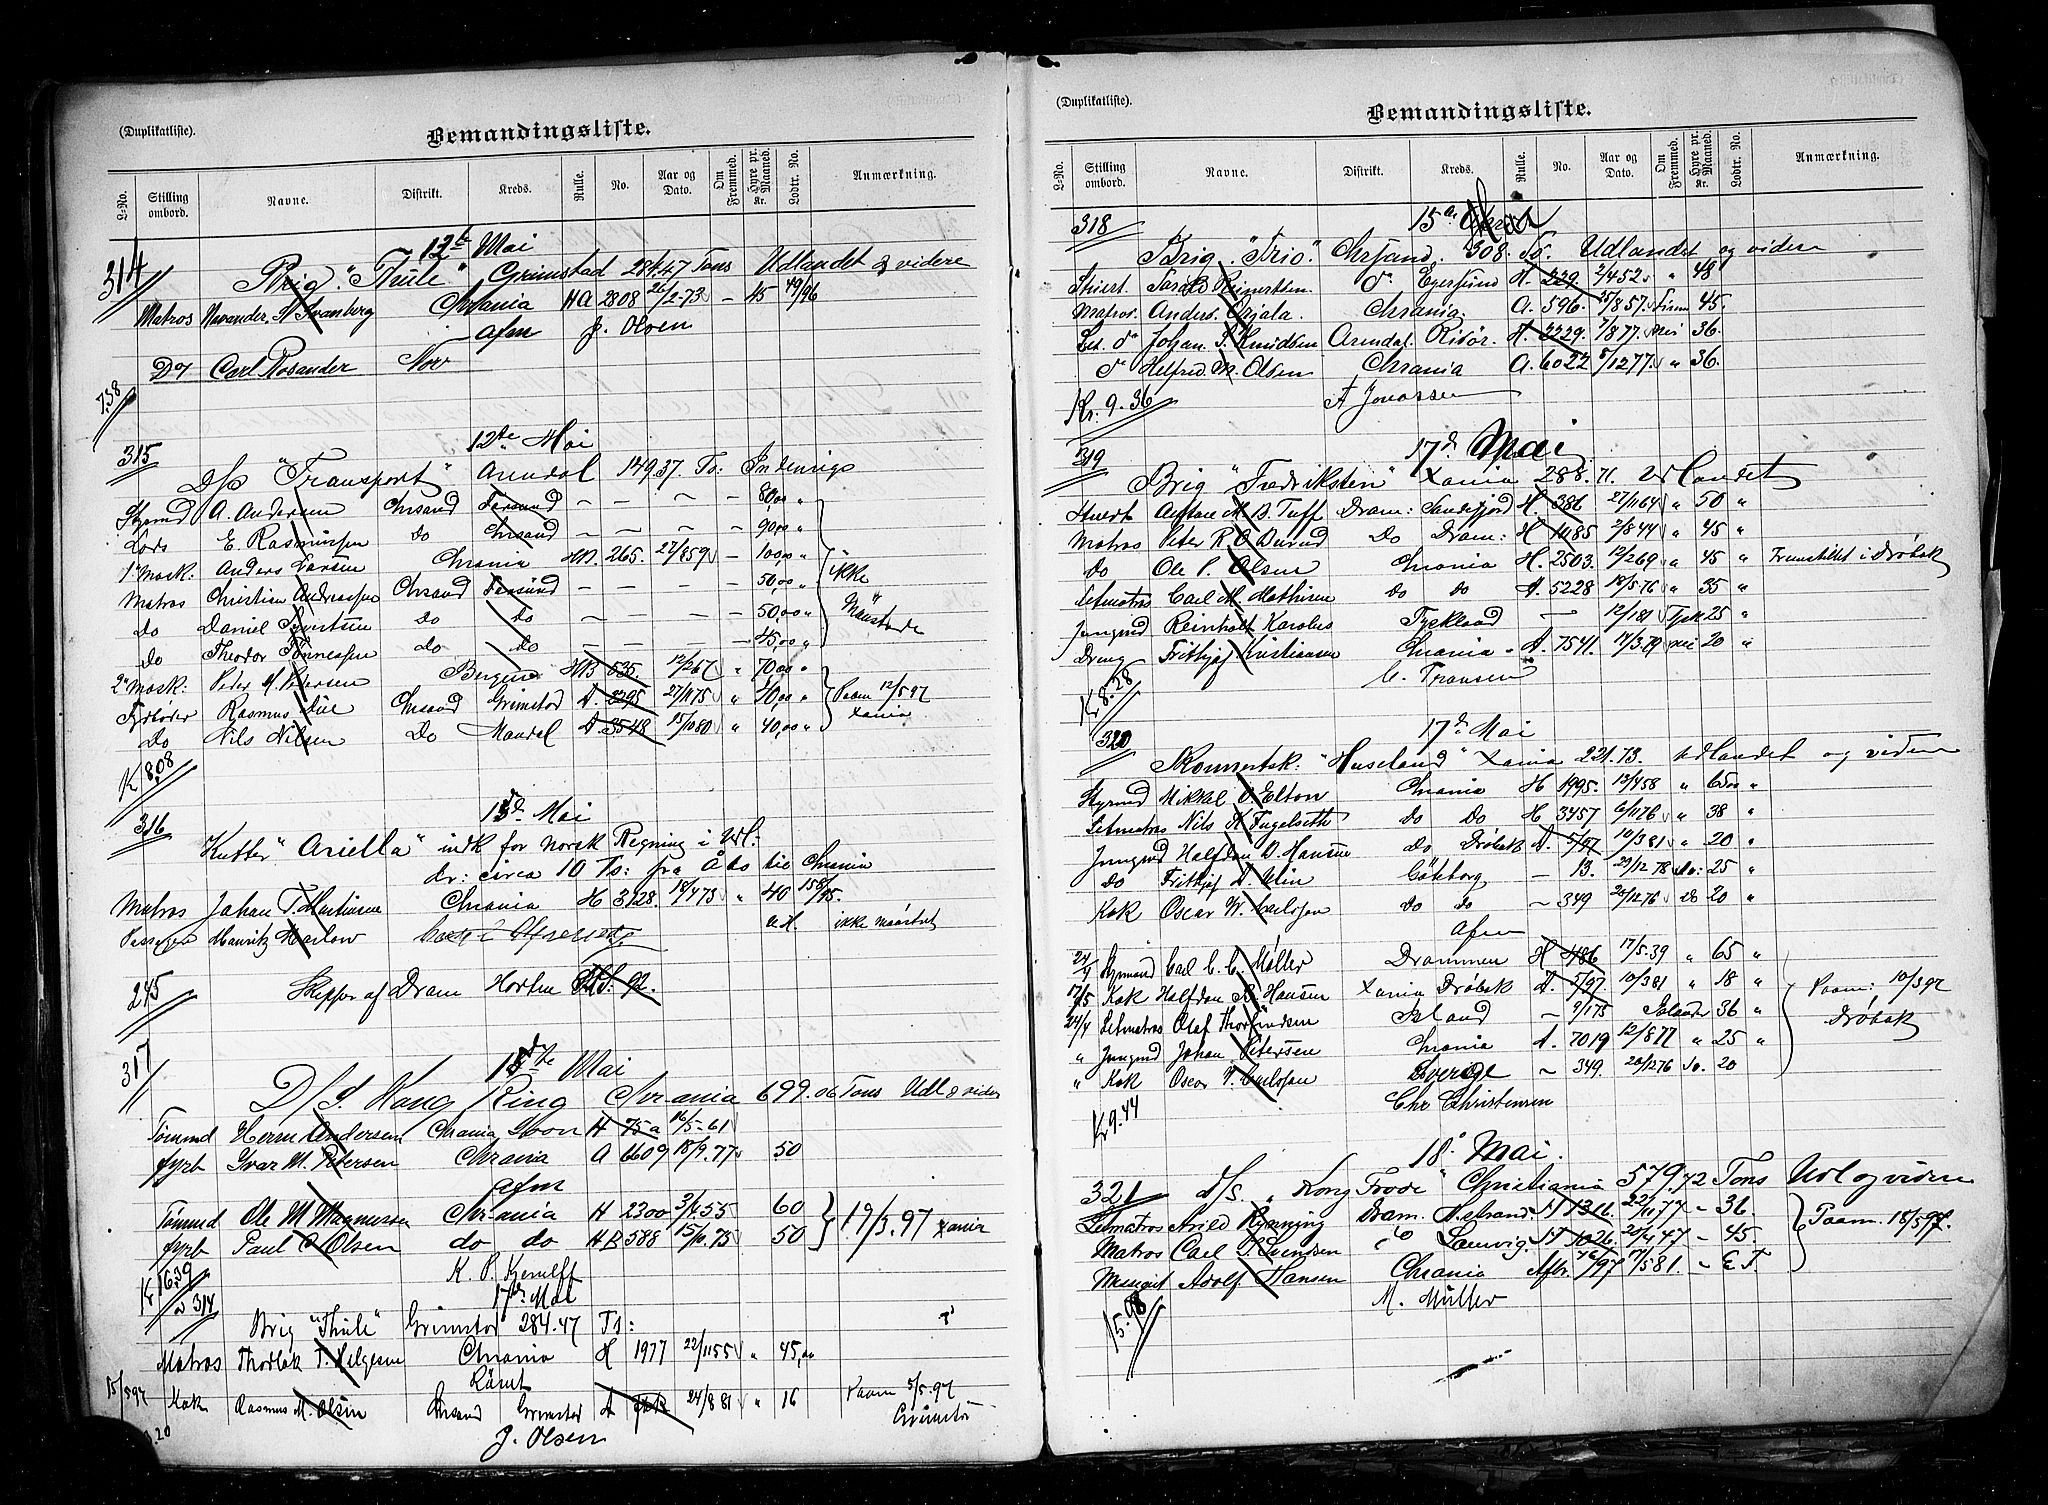 (Duplikatliste).
Bemandingsliste.
L-No. Stilling ombord. Navne. Distrikt. Kreds. Rulle. No. Aar og Dato. Om Fremmed. Hyre pr. Maaned. Kr. Lodtr. No. Anmærkning.
12te Mai
314 Brig "Thule" Grimstad 284.47 Tons Udlandet & videre
Matros Svanberg Chrania HA 2808 26/2.73 — 45 49/96
afm J. Olsen
Do Carl Rosander Nov
7.58
12te Mai
315 D/S "Transport" Arendal 149.37. To: Indenrigs
Styrmd A. Andersen Chrsand Farsund — — — 80,00 "
Lods E. Rasmussen Do Chrsand — — — 90,00 "
1ste Mask. Anders Larsen Chrania 265. 27/8 59 — 100,00 " ikke
Matros Christian Andreassen Chrsand Farsund — — 50,00 "
Do Daniel Syvertsen Do Do — — 50,00 "
Do Theodor Tønnessen do do — 45,00 "
2den Mask: Peder M. Petersen Bergen HB 535. 12/2 67 " 70,00 "
Fyrbøder Rasmus Due Chrsand Grimstad A. 2295 27/11 75 " 40,00 " Paam 12/5 97
Xania
Do Nils Nilsen Do Mandal A. 3548 15/10 80 " 40,00 "
K 8,08
13de Mai
316 Kutter "Ariella" indk for norsk Regning i Udl:
dr: circa 10 Ts: fra Åbo til Chrania
Matros Johan T. Martinsen Chrania H 3128. 18/4 73 " 40 158/95.
Passager Mauritz Marlow ikke maanstret
245 Skipper af Dram Horten 92.
18de Mai
317 D/S. Kong Ring Chrania 699.06 Tons Udl & videre
Tømmd Herm Andersen Chrania Moss H 75a 16/5-61
fyrb Ivar M. Petersen Chrania A 6609 18/9.77 50
afm
Tømmd Ole M Magnussen Chrania H 2300 3/4 55 60
fyrb Paul C Olsen do do HB 588 15/10.75 50 19/5.97 Xania
Kr 16.39 K. P. Kjerulff
17de Mai
a 314
Brig "Thule" Grimstad 284.47 Ts:
Matros Thorbak T. Helgesen Chrania H 1977 22/11 55 " 45,00
Rømt
15/5 97 Kok Rasmus M. Olsen Chrsand Grimstad A 24/8 81 " 16 Paam 5/5.97
Grimstad
J. Olsen
(Duplikatliste).
Bemandingsliste.
L-No. Stilling ombord. Navne. Distrikt. Kreds. Rulle. No. Aar og Dato. Om Fremmed. Hyre pr. Maaned. Kr. Lodtr. No. Anmærkning.
318 15de
Brig. "Trio." Chrsand. 308. To. Udlandet og videre
Stuert. Reinertsen do Egersund H. 229. 2/4 52. " 48
Matros. Anders. Orjala. Chrania. A. 596. 25/8 57. Finn 45.
Let. do Johan. S. Knudsen Arendal Risør. H. 2229. 7/8 77. 36.
do Helfred. M. Olsen Chrania A. 6022 5/12 77. " 36.
Kr. 9.36 A Jonassen
319 17de Mai
Brig "Fredriksten" Xania 288.71. Udlandet
Stuert M. B. Tuff Dram: Sandefjord H. 386 27/11 64 " 50 "
Matros Peter R. O Durud Do Dram: H 1085 2/8 44 " 45 "
Do Ole P. Olsen Chrania H. 2503. 12/2 69 " 45 " Fremstillet i Drøbak
Letmatros Carl M. Mathisen Do Do A. 5228 18/5 76 " 35 "
Jungmd Reinholt Karolus Tyskland — 12/1 81 Tysk 25 "
Dreng Frithjof Kristiansen Chrania. A. 7541. 17/3.79 20 "
C. Fransen
Kr 8.28
320 17de Mai
Skonnertsk. "Huseland" Xania 221.73. Udlandet og videre
Styrmd Mikkal O. Elton Chrania H 1995. 12/4 58 " 65,00 "
Letmatros Nils A Fugelseth Do Do H 3457 6/11 76 " 38 "
Jungmd Halfdan B. Hansen do Drøbak A. 5/97 10/3 81 " 20 "
Do Frithjof A. Göteborg — 13. 29/12 78 25 "
Kok Oscar W. Carlsson Do do — 349 20/12 76 Do 20 "
Afm
24/4 Styrmand Carl C. C. Møller Drammen H 486 17/5.39 " 65 "
17/5 Kok Halfdan B. Hansen Xania Drøbak A. 5/97 10/3 81 " 18 " Paam: 10/3 97
24/4 Letmatros Olaf Thorfindsen Island — 9/1 75 Islander 36 " Drøbak
" Jungmd Johan Petersen Chrania A. 7019 12/8 77 " 25 "
" Kok Oscar V. Carlsson Sverige — 349. 20/12 76 So. 20
Kr 9.44 Chr Christensen
18de Mai.
321 D/S. "Kong Frode" Christiania 579,72 Tons Udl og videre
Letmatros Arild Rynning Dram. H. 1311. 22/11 77 — 36.
Matros Carl S. Svendsen do Laurvig. H 1026. 20/4 47 — 45. Paam. 18/5 97.
Adolf Hansen Chrania Afbr. 7/5 81. — E T
15.98 M. Müller